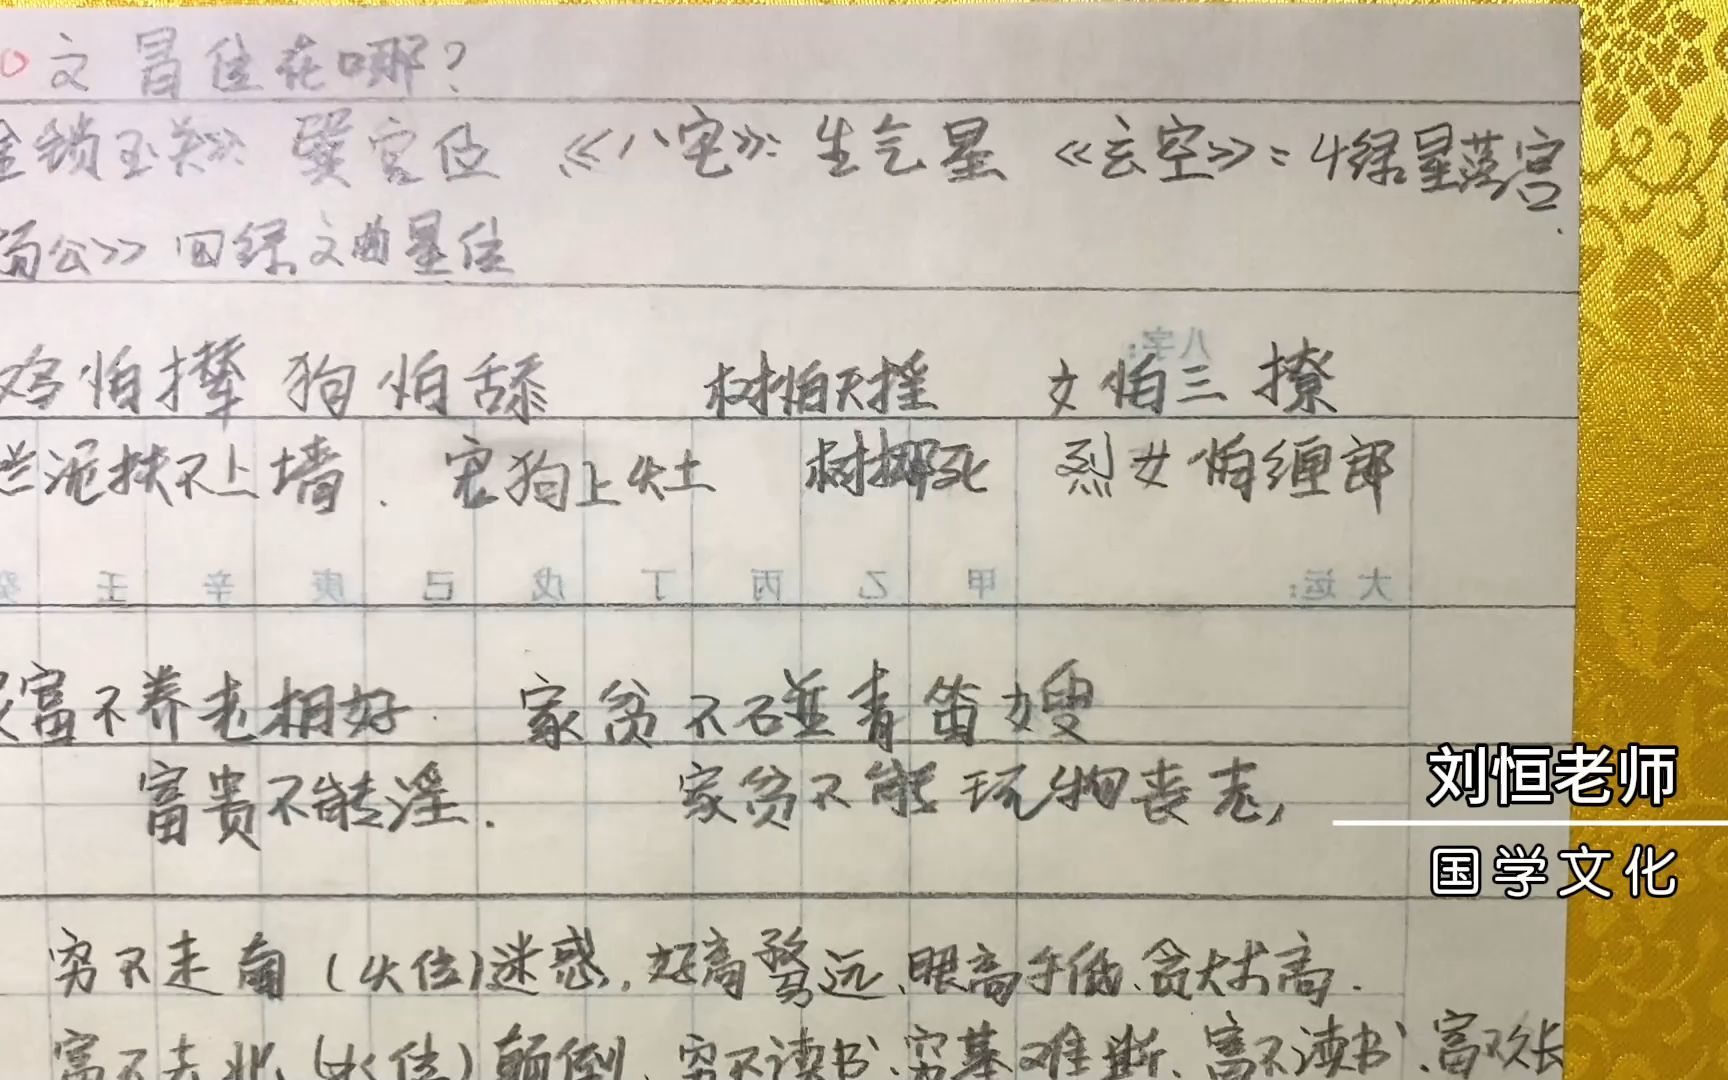 文冒位在哪?
金锁玉关》: 巽宫位 《八宅》: 生气星 《玄空》: 4绿星落宫.
杨公》 四绿文曲星位
八字:
鸡怕撵 狗怕舔 树怕天摇 女怕三撩
烂泥扶不上墙. 宠狗上灶 树挪死 烈女怕缠郎
大运: 甲 乙 丙 丁 戊 己 庚 辛 壬 癸
富不养老相好. 家贫不碰青苗嫂
富贵不能淫. 家贫不能玩物丧志,
刘恒老师
国学文化
穷不走南 (火位)迷惑, 好高骛远、眼高手低、贪大求高.
富不走北 (水位) 颠倒. 穷不读书、穷基难断、富不读书、富不长